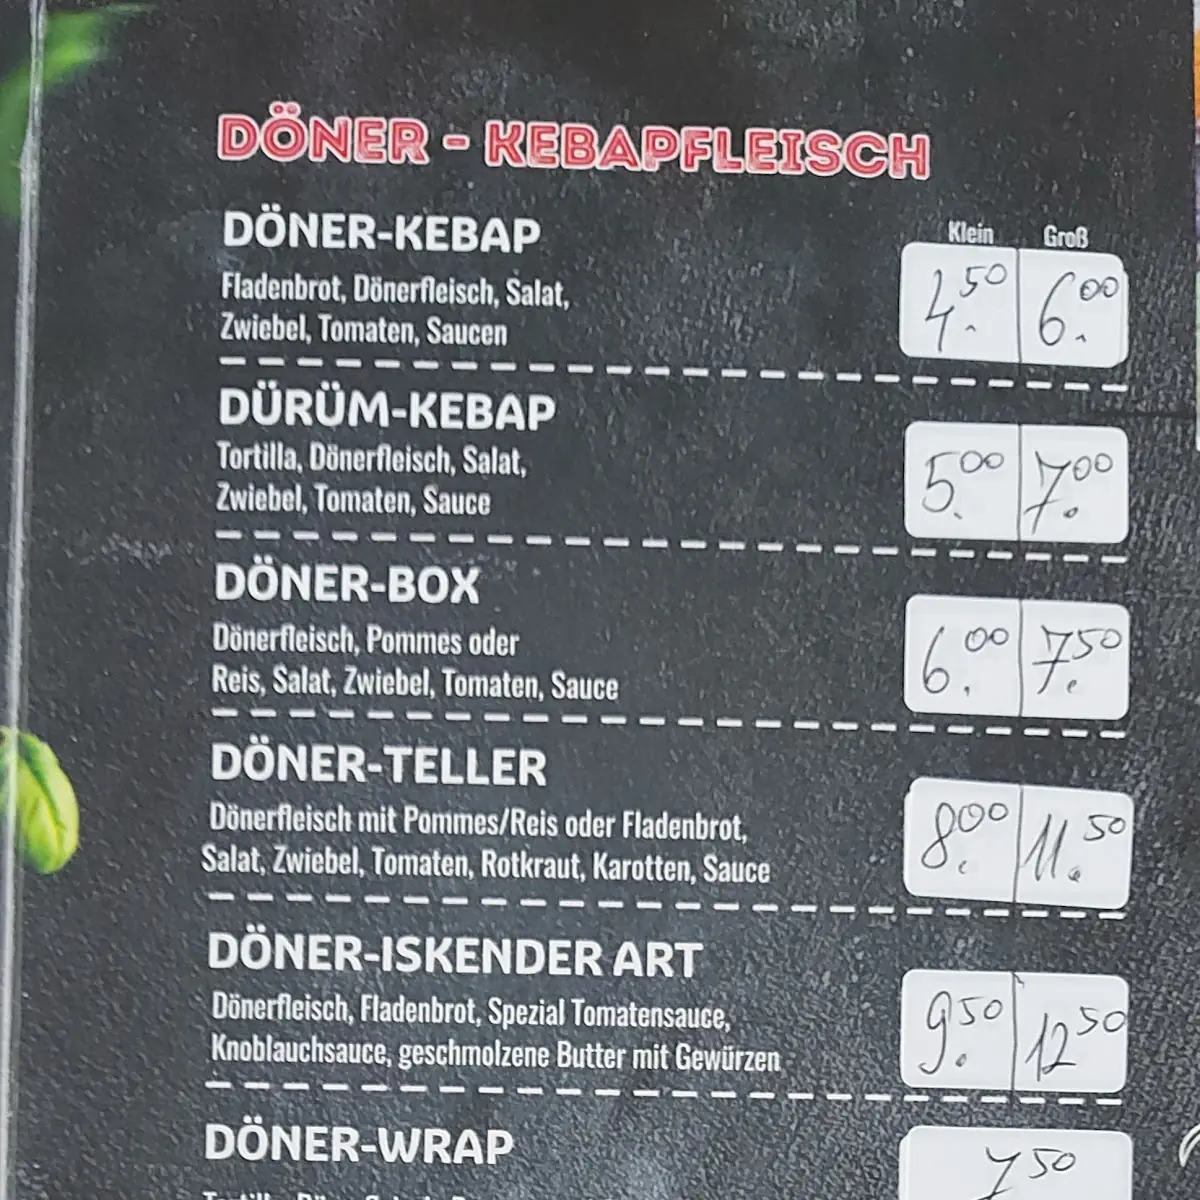 DÖNER - KEBAPFLEISCH
DÖNER-KEBAP
Klein Groß
Fladenbrot, Dönerfleisch, Salat,
Zwiebel, Tomaten, Saucen
4.50 6.00
DÜRÜM-KEBAP
Tortilla, Dönerfleisch, Salat,
Zwiebel, Tomaten, Sauce
5.00 7.00
DÖNER-BOX
Dönerfleisch, Pommes oder
Reis, Salat, Zwiebel, Tomaten, Sauce
6.00 7.50
DÖNER-TELLER
Dönerfleisch mit Pommes/Reis oder Fladenbrot,
Salat, Zwiebel, Tomaten, Rotkraut, Karotten, Sauce
8.00 11.50
DÖNER-ISKENDER ART
Dönerfleisch, Fladenbrot, Spezial Tomatensauce,
Knoblauchsauce, geschmolzene Butter mit Gewürzen
9.50 12.50
DÖNER-WRAP
7.50